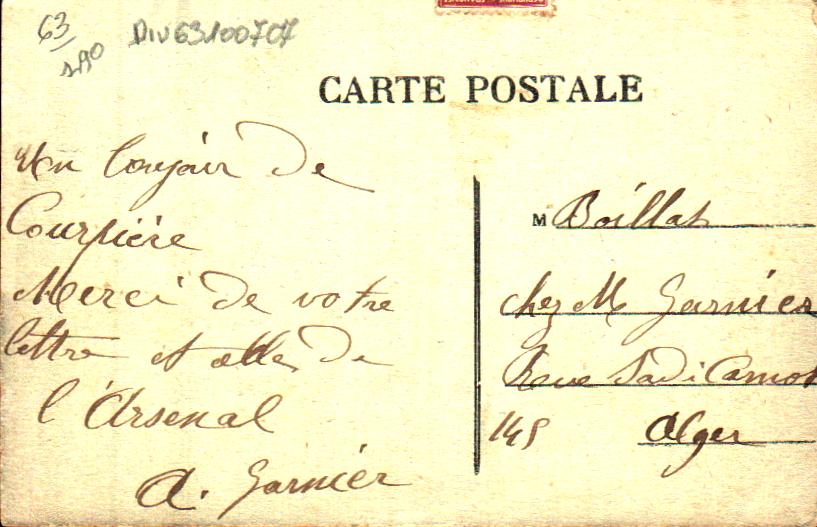 63
Div63100707
CARTE POSTALE
Un bonjour de
Courpière
Merci de votre
lettre et celle de
l'Arsenal
A. Garnier
M Boillat
chez M Garnier
Rue Sadi Carnot
145 Alger